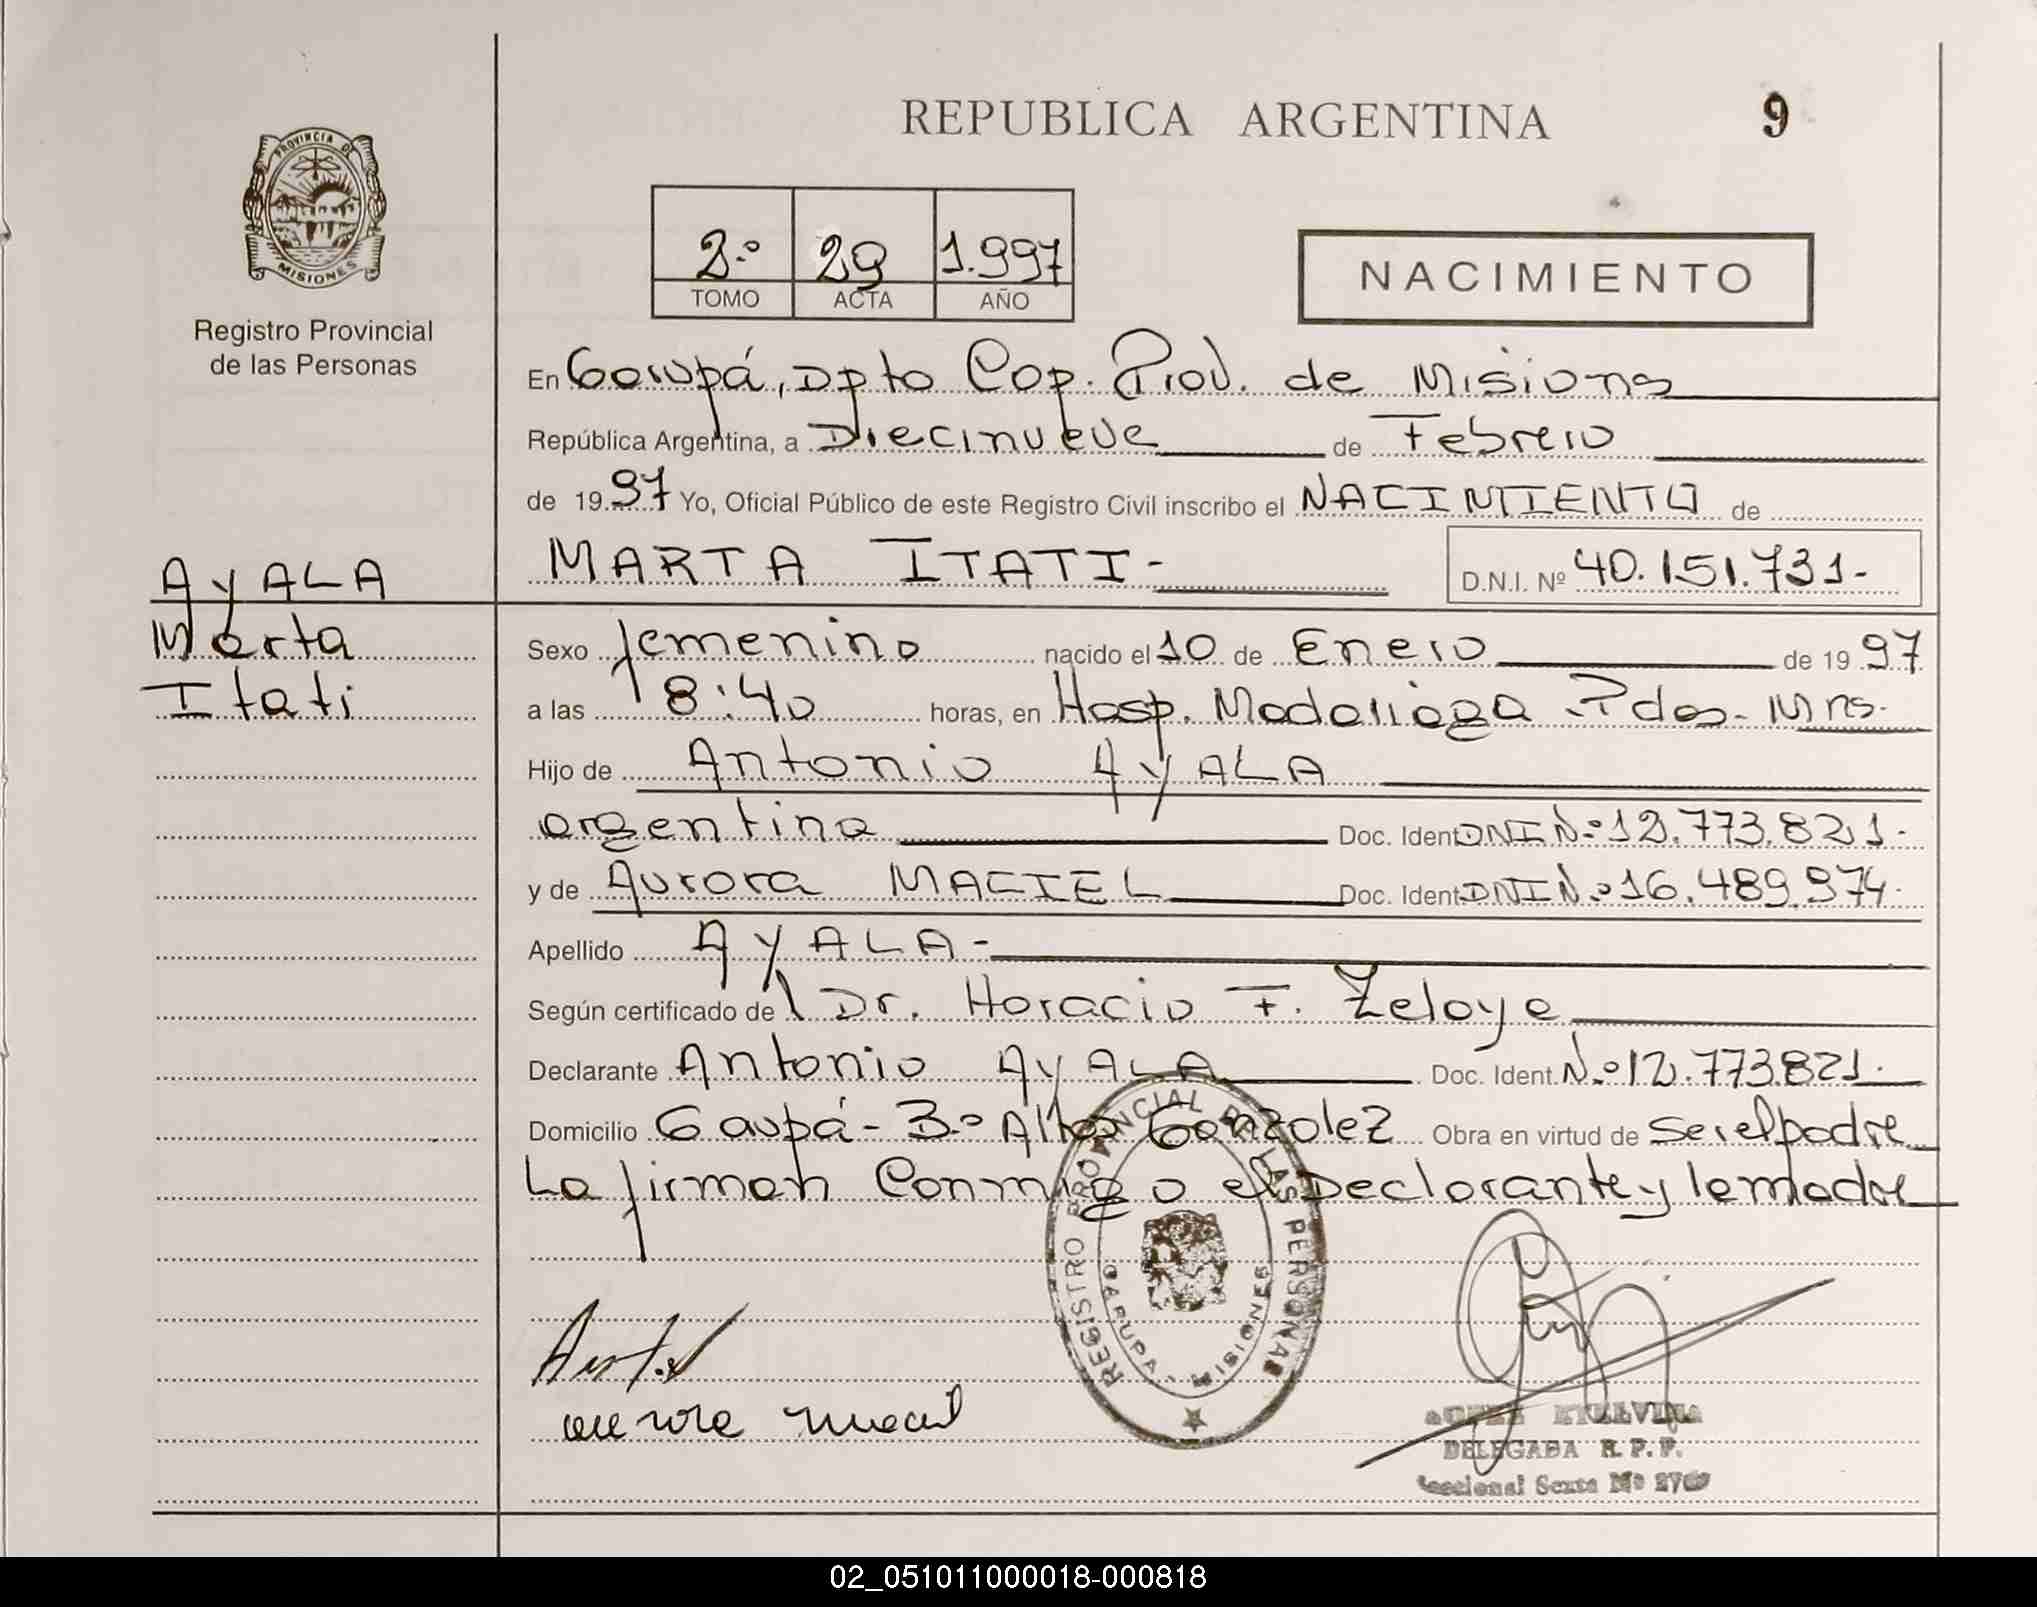 REPUBLICA ARGENTINA
9
PROVINCIA DE
MISIONES
Registro Provincial
de las Personas
2.º 29 1.997
TOMO ACTA AÑO
NACIMIENTO
En Garupá, Dpto Cap. Prov. de Misions
República Argentina, a Diecinueve de Febrero
de 19 97 Yo, Oficial Público de este Registro Civil inscribo el NACIMIENTO de
MARTA ITATI- D.N.I. Nº 40.151.731-
AYALA
Marta
Itati
Sexo femenino nacido el 10 de Enero de 19 97
a las 8:40 horas, en Hosp. Madariaga Pdas- Mns-
Hijo de Antonio AYALA
argentina Doc. Ident. DNI N.º 12.773.821-
y de Aurora MACIEL Doc. Ident. DNI N.º 16.489.974-
Apellido AYALA-
Según certificado de Dr. Horacio F. Zeloya
Declarante Antonio AYALA Doc. Ident. N.º 12.773.821-
Domicilio Gaupá- B.º Altos Gonzalez Obra en virtud de ser el padre
La firman Conmigo el Declarante y la madre
REGISTRO PROVINCIAL DE LAS PERSONAS
GARUPA - MISIONES
ETELVINA
DELEGADA R. P. P.
Seccional Sexta Nº
02_051011000018-000818